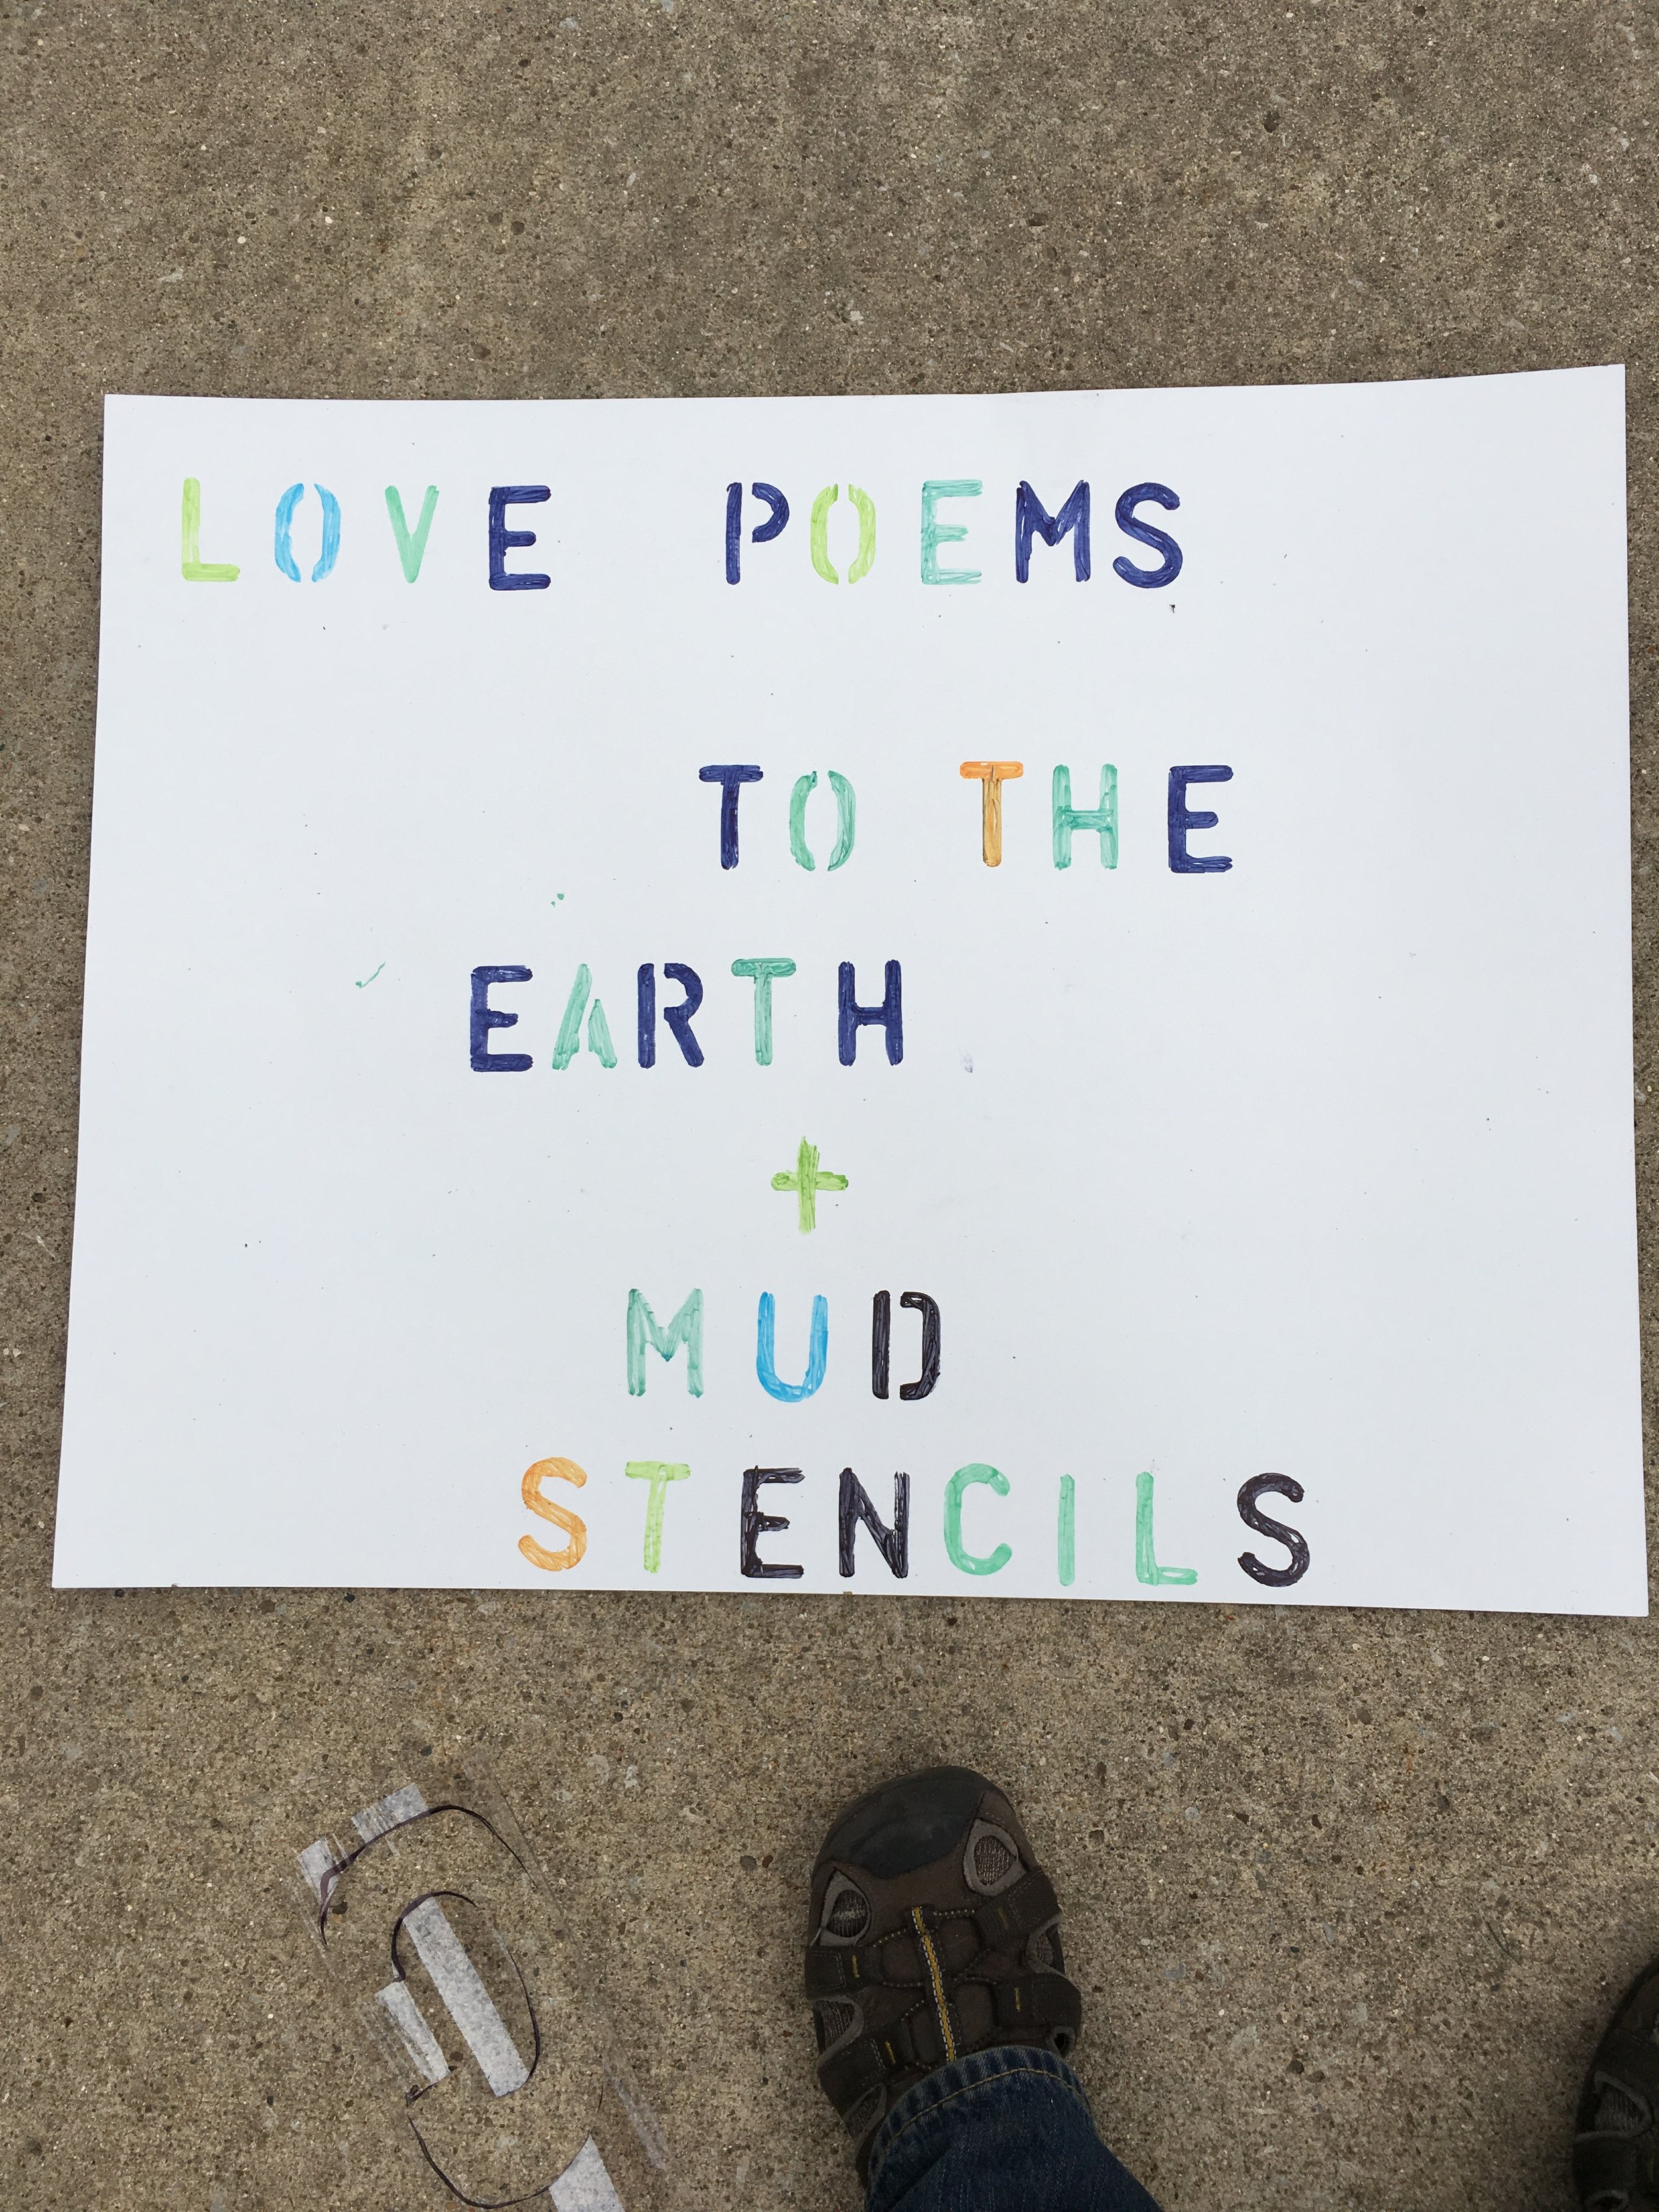 LOVE POEMS
TO THE
EARTH
+
MUD
STENCILS